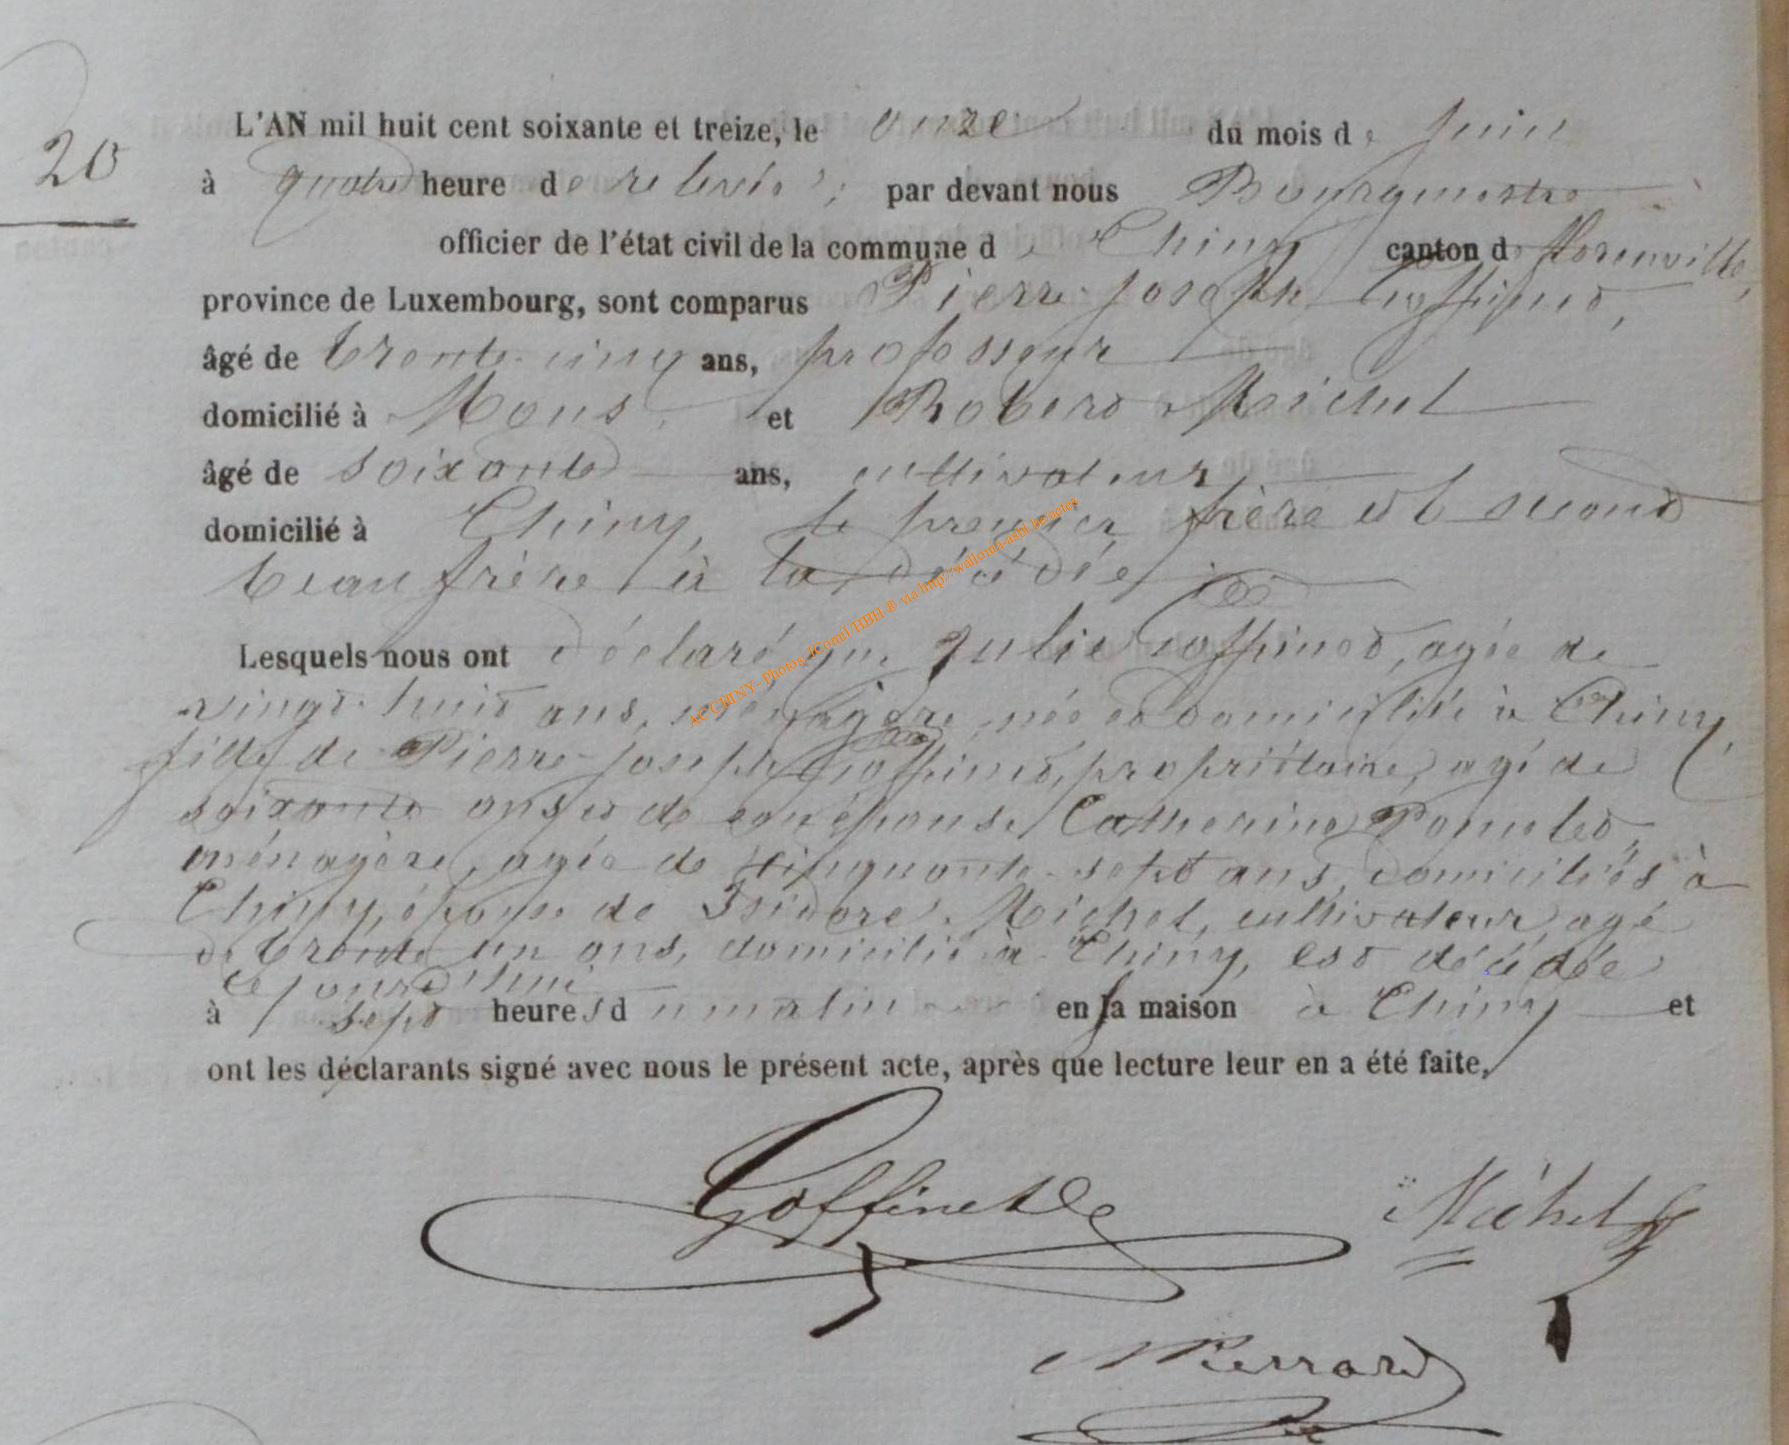 20
L'AN mil huit cent soixante et treize, le onze du mois de Juin
à quatre heure de relevée, par devant nous Bourgmestre
officier de l'état civil de la commune de Chiny canton de Florenville,
province de Luxembourg, sont comparus Pierre-Joseph Goffinet,
âgé de trente-cinq ans, professeur
domicilié à Mons, et Robert Michel
âgé de soixante ans, cultivateur
domicilié à Chiny, le premier frère et second
beau frère à la décédée
Lesquels nous ont déclaré que Julie Goffinet, agée de
vingt-huit ans, ménagère, née et domiciliée à Chiny,
fille de Pierre-Joseph Goffinet, propriétaire, agé de
soixante ans et de son épouse Catherine
ménagère, agée de cinquante-sept ans, domiciliés à
Chiny, épouse de Isidore Michel, cultivateur, agé
de trente un ans, domicilié à Chiny, est décédée
ce jourd'hui
à sept heures du matin en sa maison à Chiny et
ont les déclarants signé avec nous le présent acte, après que lecture leur en a été faite,
Goffinet Michel
Pierrard
AC CHINY- Photos JConil HBH ® via http://wallonia-asbl.be/actes